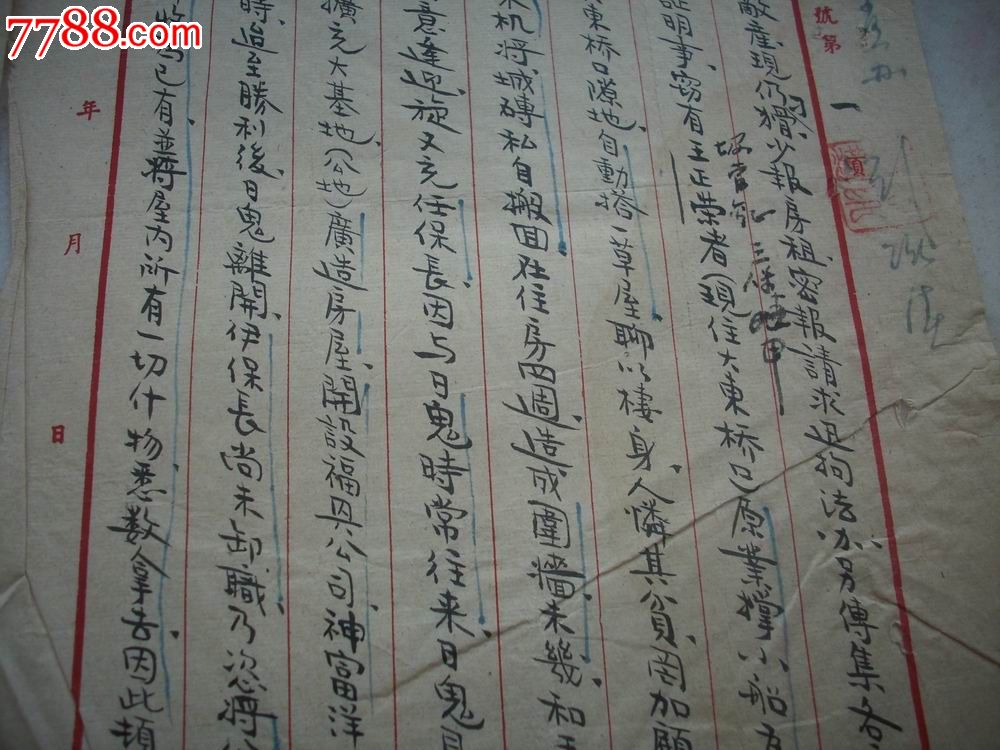 7788.com
號第
一
敵產現仍獪少報房租密報請求迅拘法办另傳集各
三保 甲
証明事窃有王正榮者(現住大東桥口)原業撑小船为
東桥口隙地自動搭一草屋聊以棲身人憐其貧困加願
机將城磚私自搬回在住房四週造成圍牆未幾和
意逢迎旋又充任保長因与日鬼時常往来日鬼
擴充大基地(公地)廣造房屋開設福興公司神富洋
時迨至勝利後日鬼離開伊保長尚未卸職乃恣將
收為己有並將屋内所有一切什物悉数拿去因此損
年
月
日